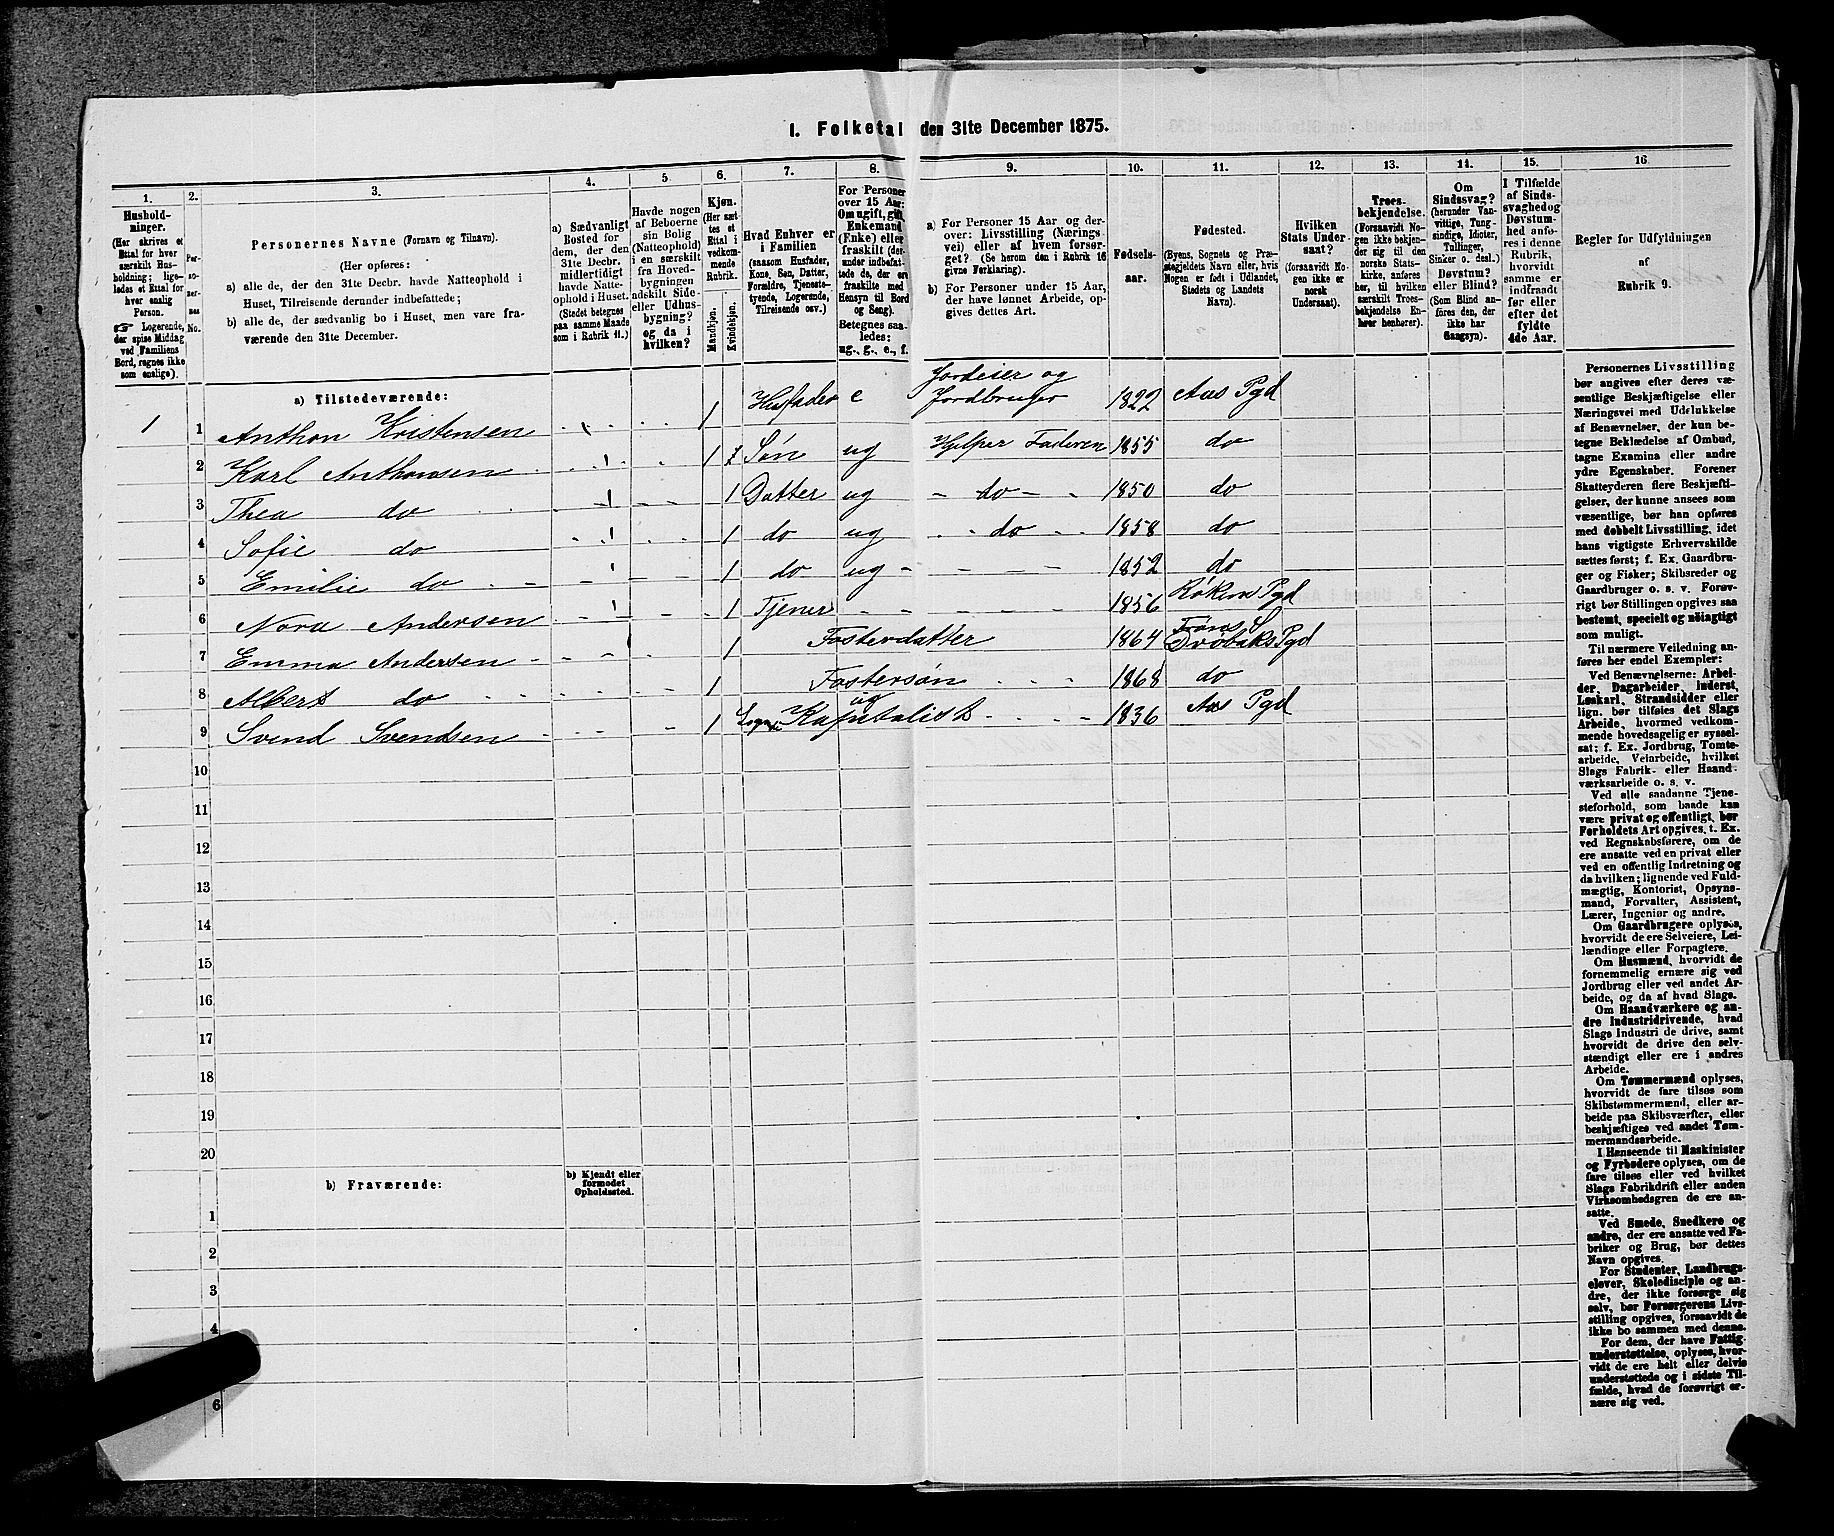 I. Folketal den 31te December 1875.
1.
Husholdninger.
(Her skrives et Ettal for hver særskilt Husholdning; ligeledes et Ettal for hver enlig Person.
☞ Logerende, der spise Middag ved Familiens Bord, regnes ikke som enslige).
2.
Personernes No.
3.
Personernes Navne (Fornavn og Tilnavn).
(Her opføres:
a) alle de, der den 31te Decbr. havde Natteophold i Huset, Tilreisende derunder indbefattede;
b) alle de, der sædvanlig bo i Huset, men vare fraværende den 31te December.
4.
a) Sædvanligt Bosted for dem, der den 31te Decbr. midlertidigt havde Natteophold i Huset. (Stedet betegnes paa samme Maade som i Rubrik 11.)
5
Havde nogen af Beboerne sin Bolig (Natteophold) i en særskilt fra Hovedbygningen adskilt Side- eller Udhusbygning? og da i hvilken?
6.
Kjøn.
(Her sættes et Ettal i vedkommende Rubrik.
Mandkjøn.
Kvindekjøn.
7.
Hvad Enhver er i Familien
(saasom Husfader, Kone, Søn, Datter, Forældre, Tjenestetyende, Logerende, Tilreisende osv.)
8.
For Personer over 15 Aar: Om ugift, gift, Enkemand (Enke) eller fraskilt (derunder indbefattede de, der ere fraskilte med Hensyn til Bord og Seng).
Betegnes saaledes:
ug., g., e., f.
9.
a) For Personer 15 Aar og derover: Livsstilling (Næringsvei) eller af hvem forsørget? (Se herom den i Rubrik 16 givne Forklaring).
b) For Personer under 15 Aar, der have lønnet Arbeide, opgives dettes Art.
10.
Fødselsaar.
11.
Fødested.
(Byens, Sognets og Præstegjeldets Navn eller, hvis Nogen er født i Udlandet, Stedets og Landets Navn).
12.
Hvilken Stats Undersaat?
(forsaavidt Nogen ikke er norsk Undersaat).
13.
Troesbekjendelse.
(Forsaavidt Nogen ikke bekjender sig til den norske Statskirke, anføres her, til hvilken særskilt Troesbekjendelse Enhver henhører).
14.
Om Sindssvag?
(herunder Vanvittige, Tungsindige, Idioter, Tullinger, Sinker o. desl.)
Døvstum? eller Blind?
(Som Blind anføres den, der ikke har Gangsyn).
15.
I Tilfælde af Sindssvaghed og Døvstumhed anføres i denne Rubrik, hvorvidt samme er indtraadt før eller efter det fyldte 4de Aar.
16
Regler for Udfyldningen
af
Rubrik 9.
a) Tilstedeværende:
1 1 Anthon Kristensen 1 Husfader e Jordeier og Jordbruger 1822 Aas Pgd
2 Karl Anthonsen 1 Søn ug Hjelper Faderen 1855 do
3 Thea do 1 Datter ug - do - 1850 do
4 Sofie do 1 do ug do 1858 do
5 Emilie do 1 do ug 1852 do
6 Nora Andersen 1 Tjener 1856 Røken Pgd
7 Emma Andersen 1 Fosterdatter 1864 Drøbaks Pgd
8 Albert do 1 Fostersøn 1868 do
9 Svend Svendsen 1 ug Kapitalist 1836 Aas Pgd
10
11
12
13
14
15
16
17
18
19
20
b) Fraværende:
b) Kjendt eller formodet Opholdssted.
1
2
3
4
6
Personernes Livsstilling
bør angives efter deres væ-
sentlige Beskjæftigelse eller
Næringsvei med Udelukkelse
af Benævnelser, der kun be-
tegne Beklædelse af Ombud,
tagne Examina eller andre
ydre Egenskaber. Forener
Skatteyderen flere Beskjæfti-
gelser, der kunne ansees som
væsentlige, bør han opføres
med dobbelt Livsstilling, idet
hans vigtigste Erhvervskilde
sættes først; f. Ex. Gaardbru-
ger og Fisker; Skibsreder og
Gaardbruger o. s. v. Forøv-
rigt bør Stillingen opgives saa
bestemt, specielt og nøiagtigt
som muligt.
Til nærmere Veiledning an-
føres her endel Exempler:
Ved Benævnelserne: Arbei-
der, Dagarbeider, Inderst,
Løskarl, Strandsidder eller
lign. bør tilføies det Slags
Arbeide, hvormed vedkom-
mende hovedsagelig er syssel-
sat; f. Ex. Jordbrug, Tomte-
arbeide, Veiarbeide, hvilket
Slags Fabrik- eller Haand-
værksarbeide o. s. v.
Ved alle saadanne Tjene-
steforhold, som baade kan
være privat og offentligt, bør
Forholdets Art opgives, t. Ex.
ved Regnskabsførere, om de
ere ansatte ved en privat eller
ved en offentlig Indretning og
da hvilken; lignende ved Fuld-
mægtig, Kontorist, Opsyns-
mand, Forvalter, Assistent,
Lærer, Ingeniør og andre.
Om Gaardbrugere oplyses,
hvorvidt de ere Selveiere, Lei-
lændinge eller Forpagtere.
Om Husmænd, hvorvidt de
fornemmelig ernære sig ved
Jordbrug eller ved andet Ar-
beide, og da af hvad Slags.
Om Haandværkere og an-
dre Industridrivende, hvad
Slags Industri de drive, samt
hvorvidt de drive den selv-
stændigt eller ere i andres
Arbeide.
Om Tømmermænd oplyses,
hvorvidt de fare tilsøs som
Skibstømmermænd, eller ar-
beide paa Skibsværfter, eller
beskjæftiges ved andet Tøm-
mermandsarbeide.
I Henseende til Maskinister
og Fyrbødere oplyses, om de
fare tilsøs eller ved hvilket
Slags Fabrikdrift eller anden
Virksomhedsgren de ere an-
satte.
Ved Smede, Snedkere og
andre, der ere ansatte ved Fa-
briker og Brug, bør dettes
Navn opgives.
For Studenter, Landbrugs-
elever, Skoledisciple og an-
dre, der ikke forsørge sig
selv, bør Forsørgerens Livs-
stilling opgives, forsaavidt de
ikke bo sammen med denne.
For dem, der have Fattig-
understøttelse, oplyses, hvor-
vidt de ere helt eller delvis
understøttede og i sidste Til-
fælde, hvad de forøvrigt er-
nære sig ved.